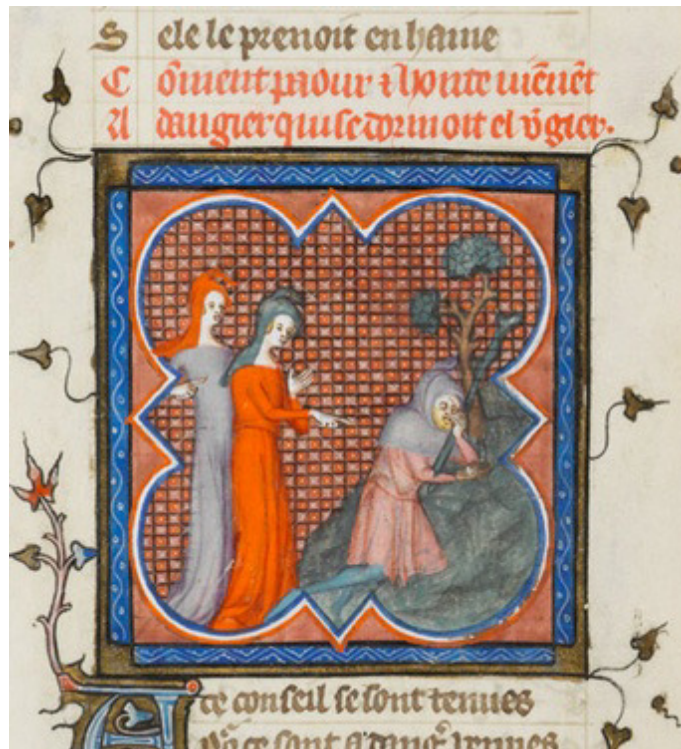 S ele le prenoit en haine
C õment paour ⁊ honte uiẽnẽt
A daugier qui se dormoit el ṽgier.
A ce conseil se sont tenues